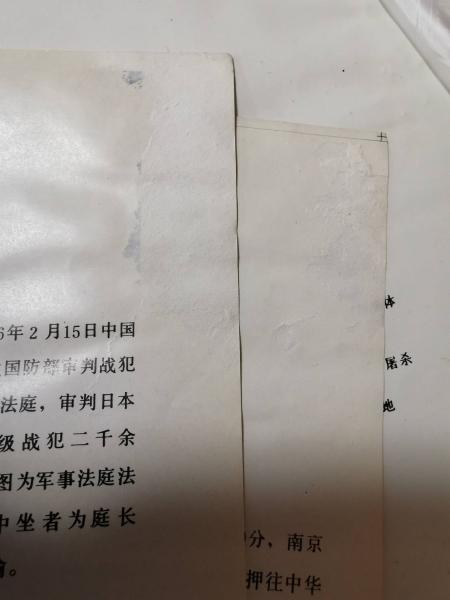 6年2月15日中国
国防部审判战犯
法庭，审判日本
级战犯二千余
图为军事法庭法
中坐者为庭长
。
分，南京
押往中华
体
屠杀
地